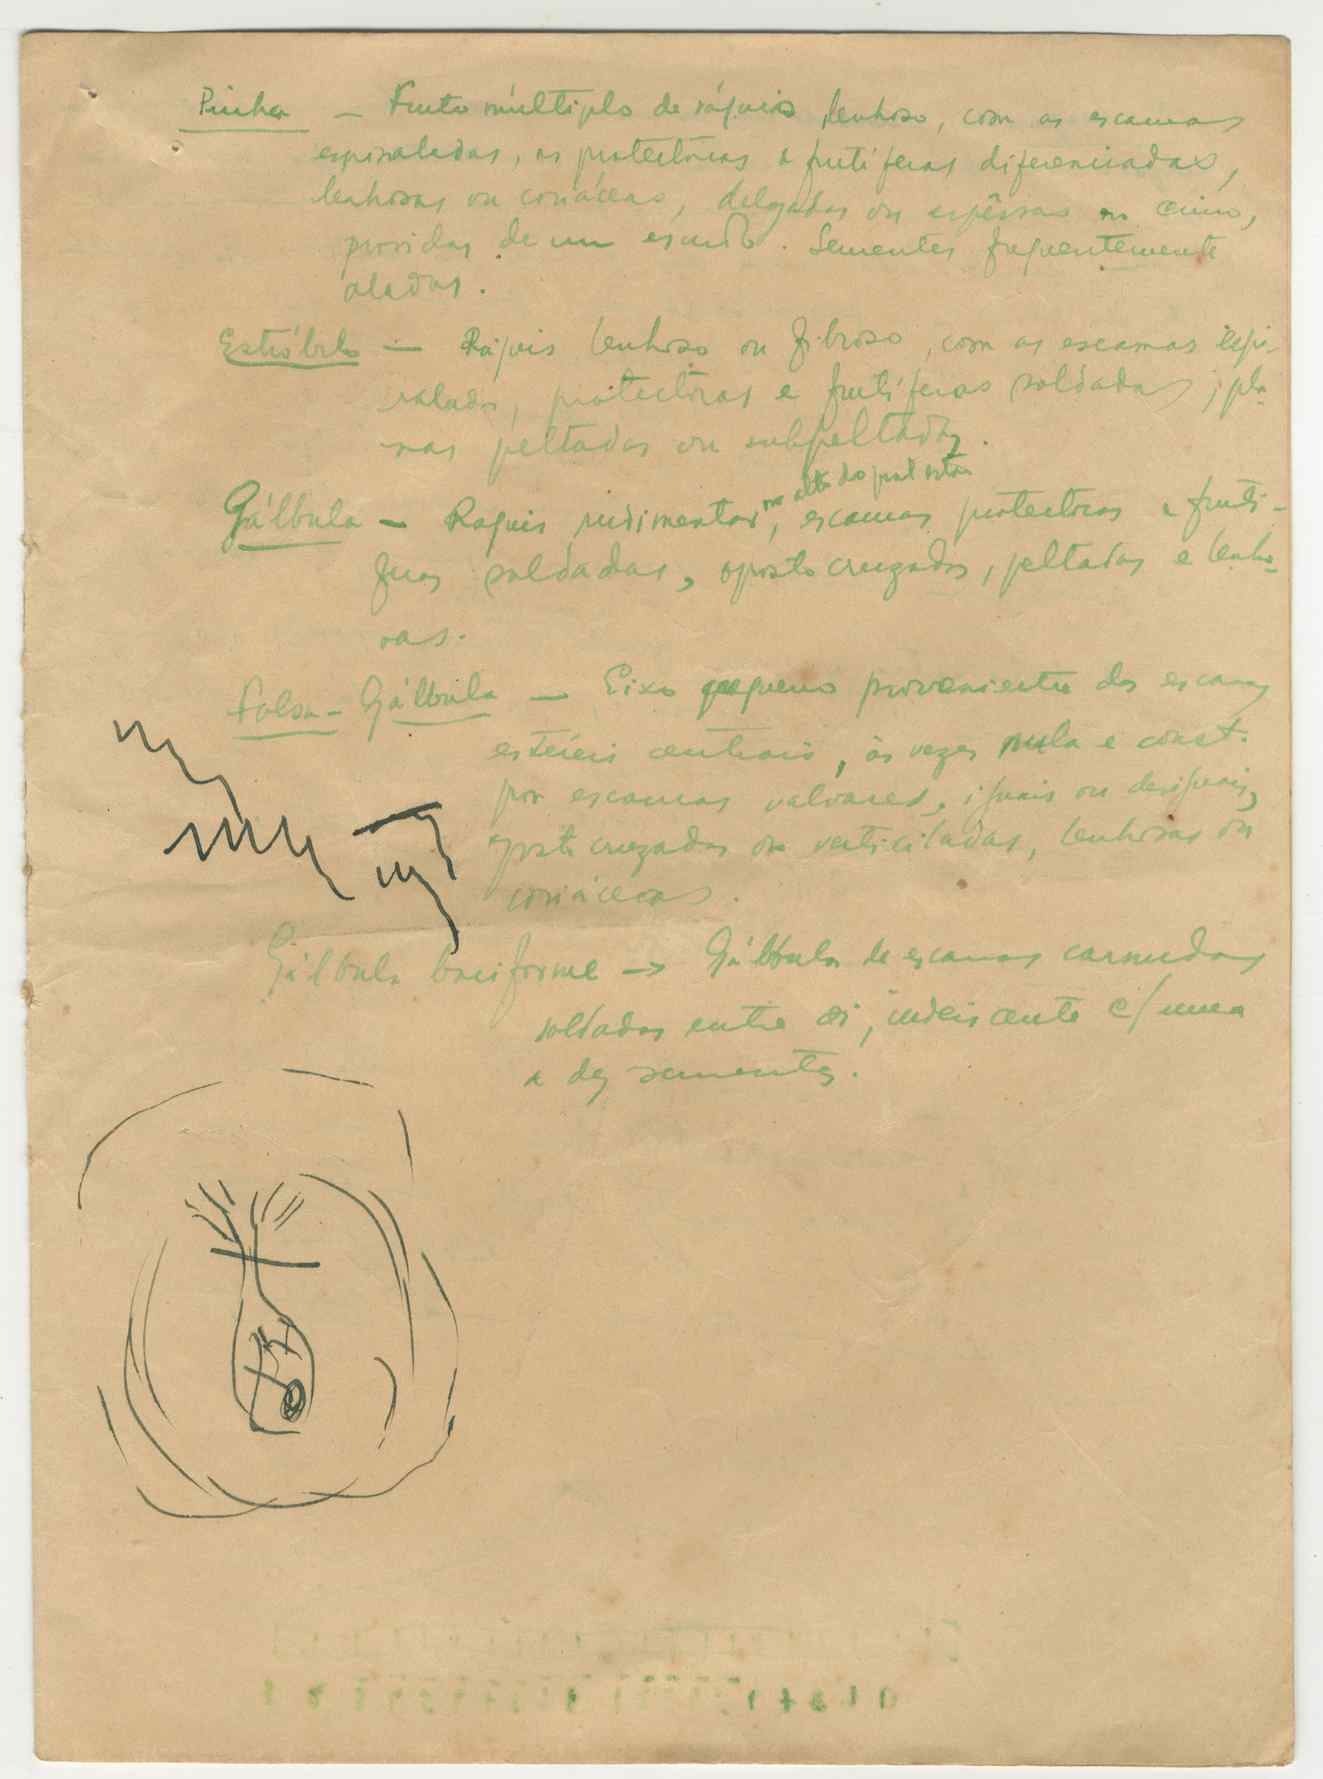 Pinha — Fruto múltiplo de ráquis lenhoso, com as escamas
espiraladas, as protectoras e frutíferas diferenciadas,
lenhosas ou coriáceas, delgadas ou espêssas no cimo,
providas de um escudo. Sementes frequentemente
aladas.
Estróbilo — Ráquis lenhoso ou fibroso, com as escamas espi-
raladas, protectoras e frutíferas soldadas, pla-
nas peltadas ou subpeltadas.
no alto do qual estão
Gálbula — Raquis rudimentar, escamas protectoras e frutí-
feras soldadas, oposto cruzadas, peltadas e lenho-
sas.
Falsa-Gálbula — Eixo pequeno proveniente das escamas
estéreis centrais, às vezes nula e const.
por escamas valvares, iguais ou desiguais,
oposti cruzadas ou verticiladas, lenhosas ou
coriáceas.
Gálbula baciforme → Gálbula de escamas carnudas
soldadas entre si, indeiscente c/ uma
a dez sementes.